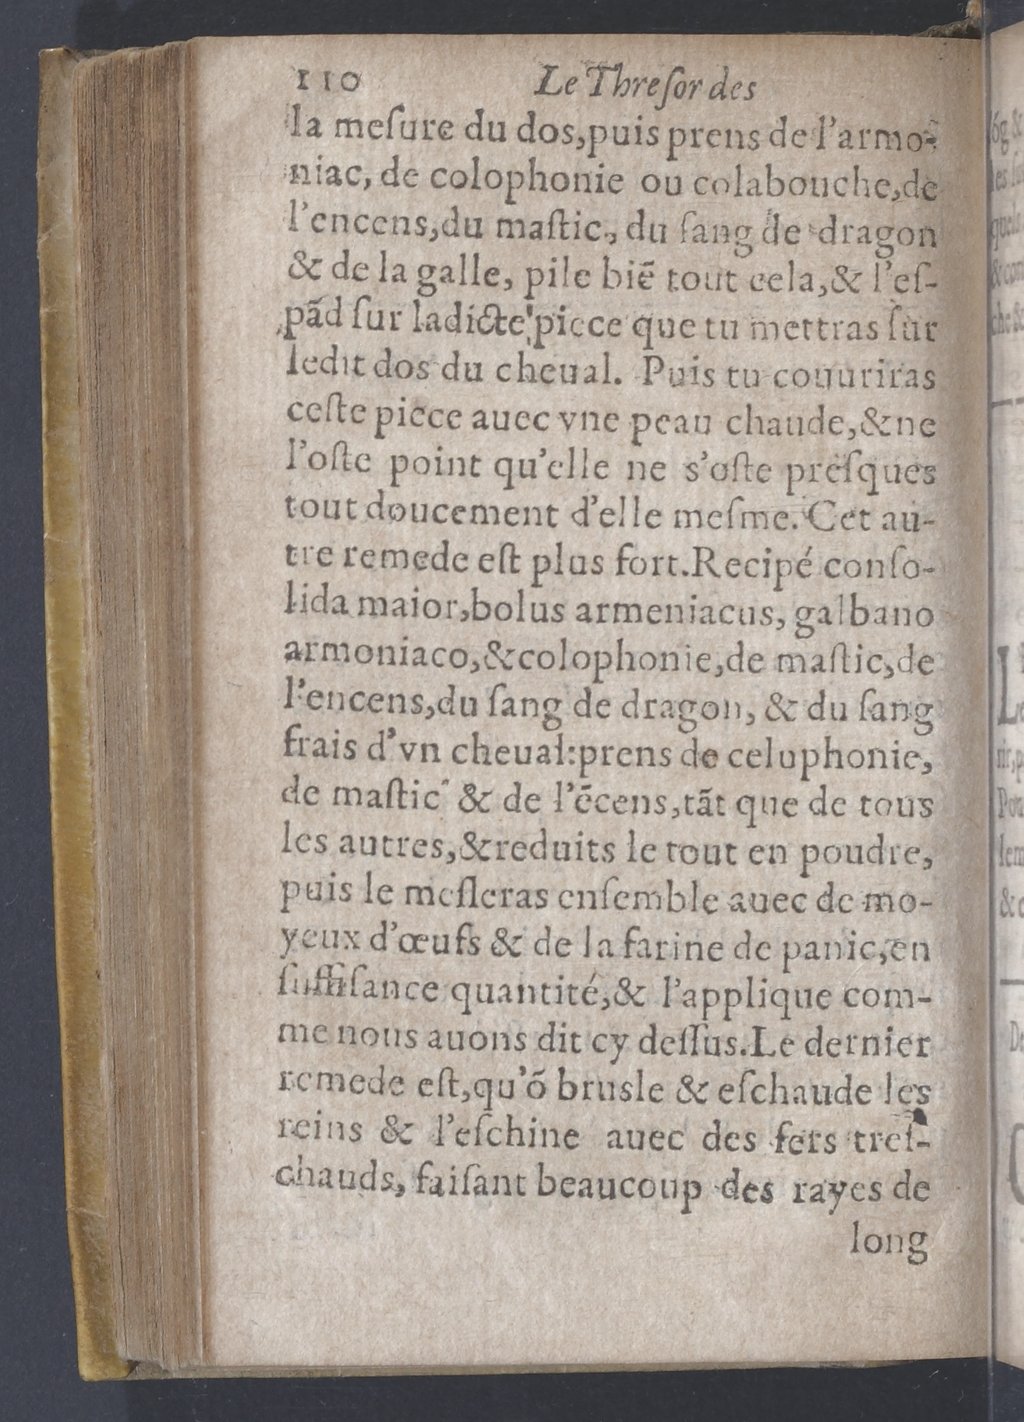 110 Le Threſor des
la meſure du dos,puis prens de l'armo-
niac, de colophonie ou colabouche,de
l'encens,du maſtic, du ſang de dragon
& de la galle, pile biẽ tout cela,& l'eſ-
pãd ſur ladicte piece que tu mettras ſur
ledit dos du cheual. Puis tu couuriras
ceſte piece auec vne peau chaude,&ne
l'oſte point qu'elle ne s'oſte preſques
tout doucement d'elle meſme. Cet au-
tre remede eſt plus fort.Recipé conſo-
lida maior,bolus armeniacus, galbano
armoniaco,&colophonie,de maſtic,de
l'encens,du ſang de dragon, & du ſang
frais d'vn cheual:prens de celuphonie,
de maſtic & de l'ẽcens,tãt que de tous
les autres,&reduits le tout en poudre,
puis le meſleras enſemble auec de mo-
yeux d'œufs & de la farine de panic,en
ſuffiſance quantité,& l'applique com-
me nous auons dit cy deſſus.Le dernier
remede eſt,qu'õ brusle & eſchaude les
reins & l'eſchine auec des fers treſ-
chauds, faiſant beaucoup des rayes de
long